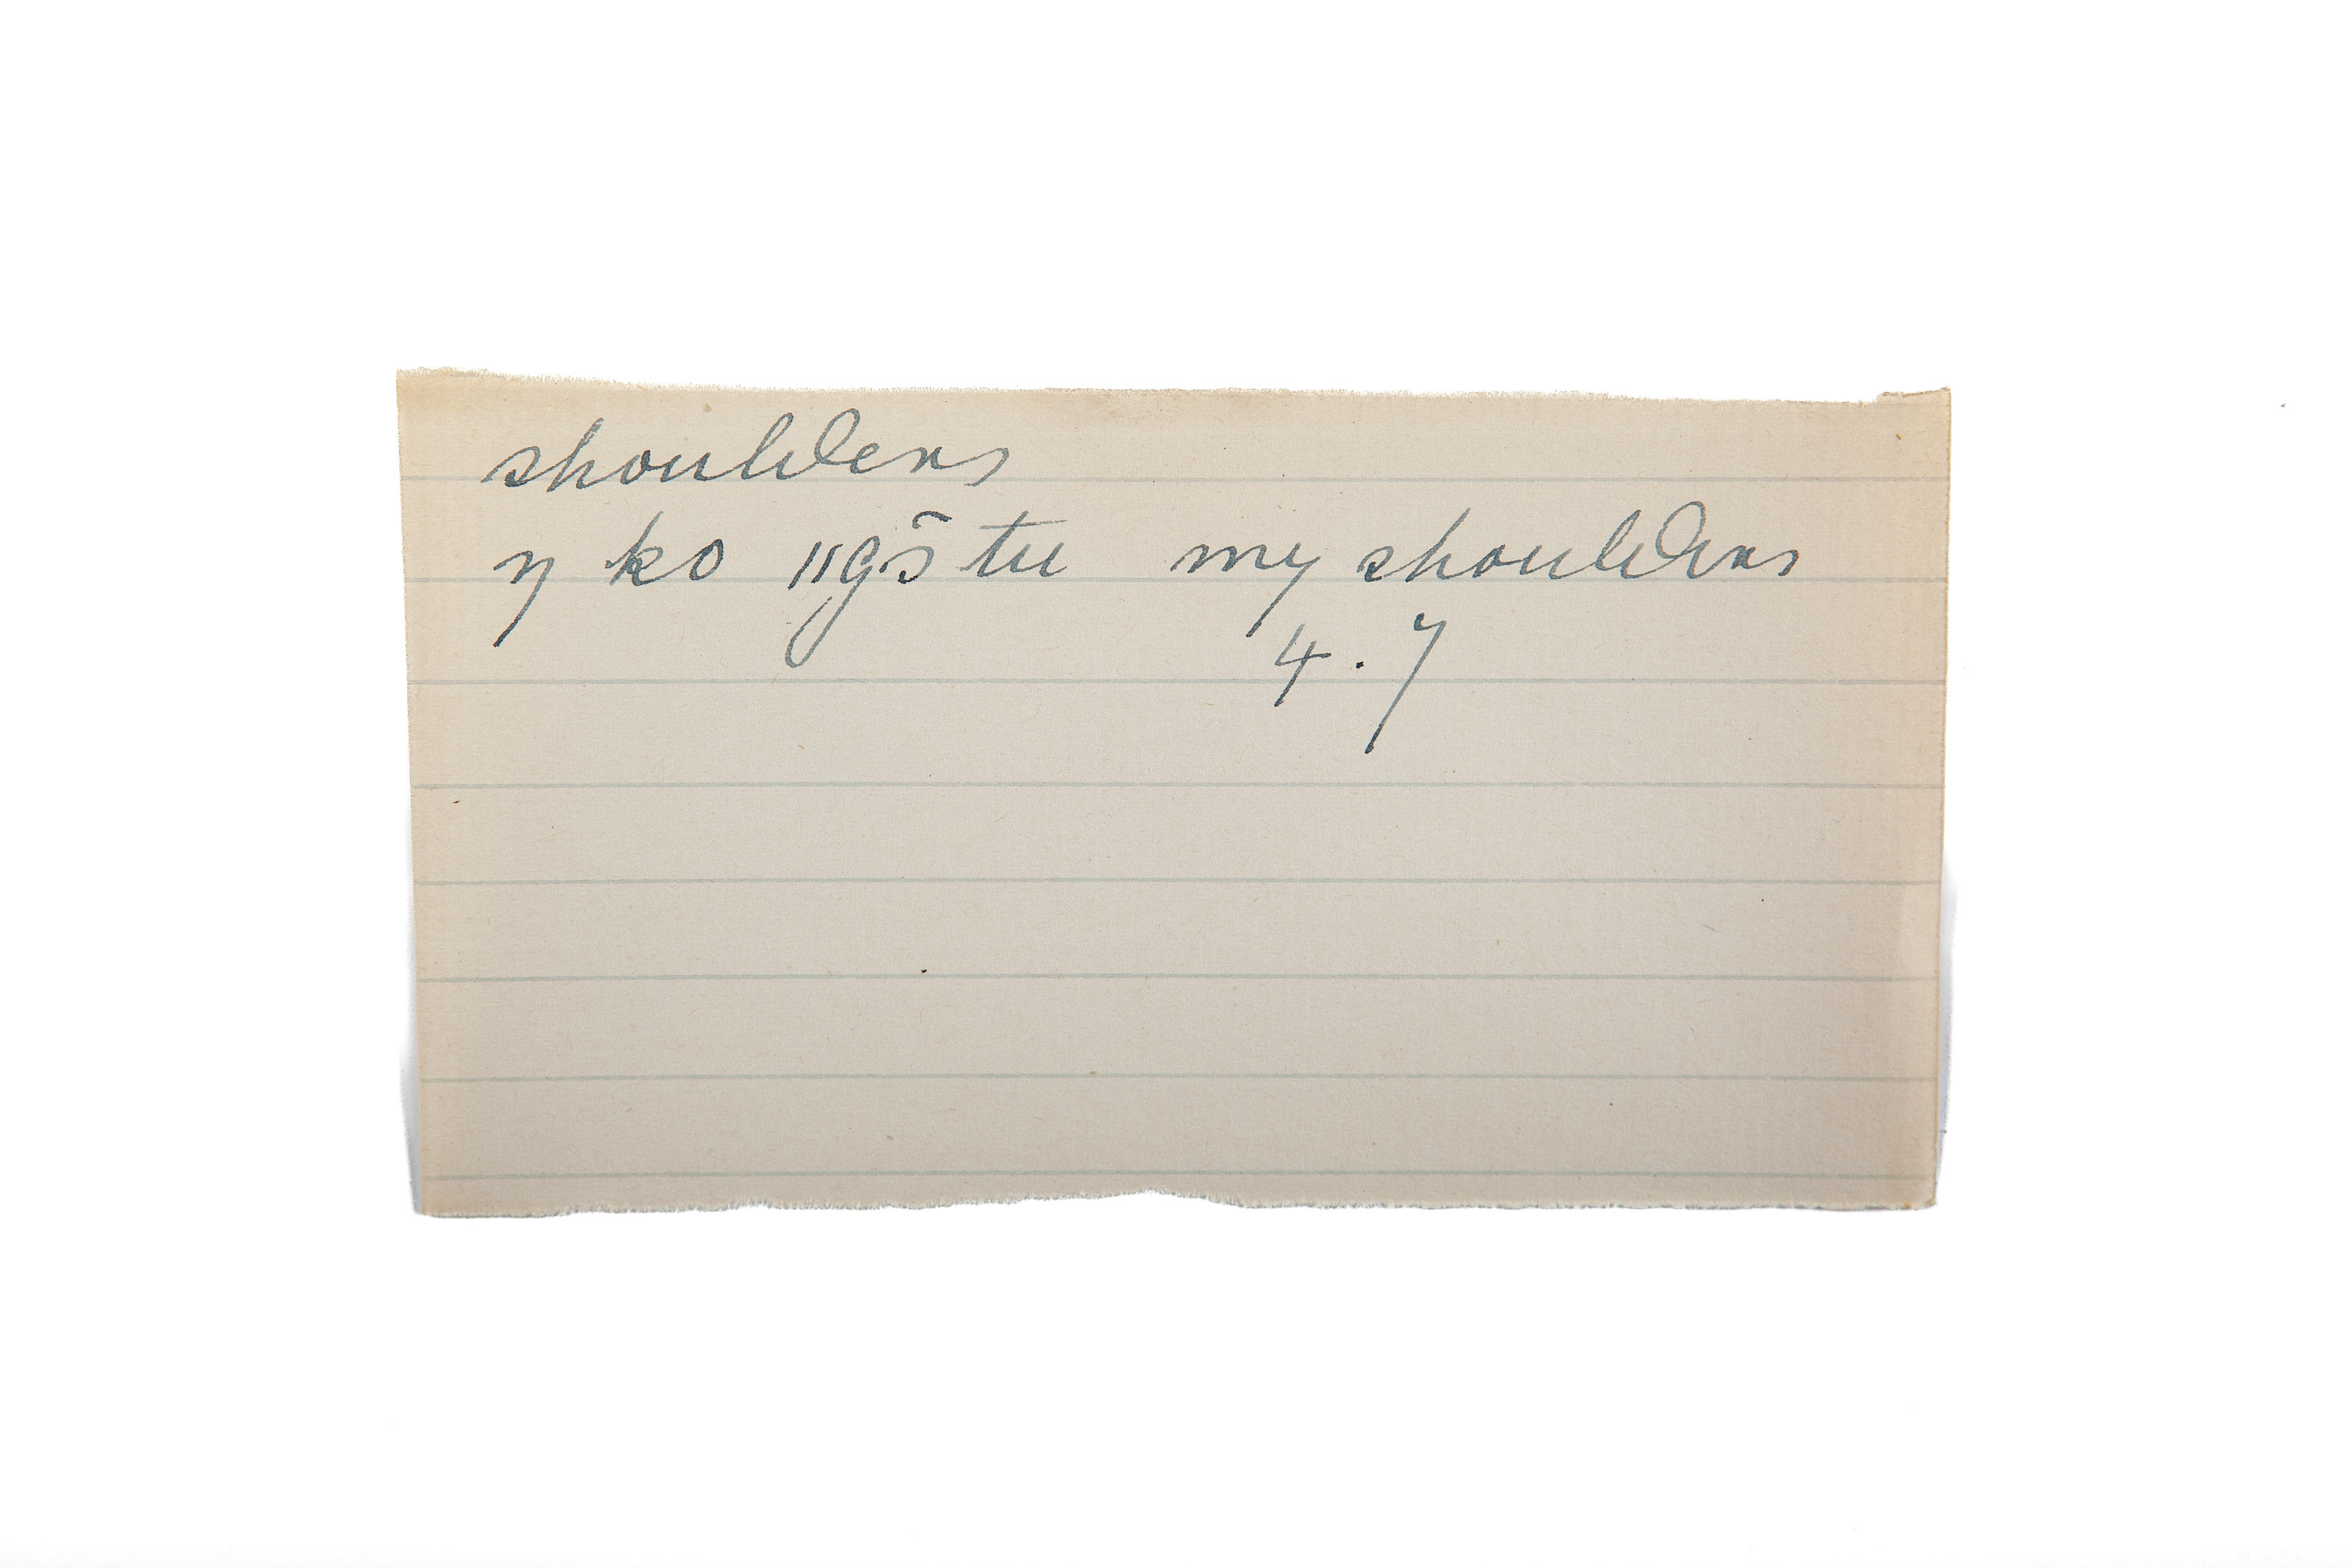 shoulders
ŋ ko ǁgō tu my shoulders
4.7